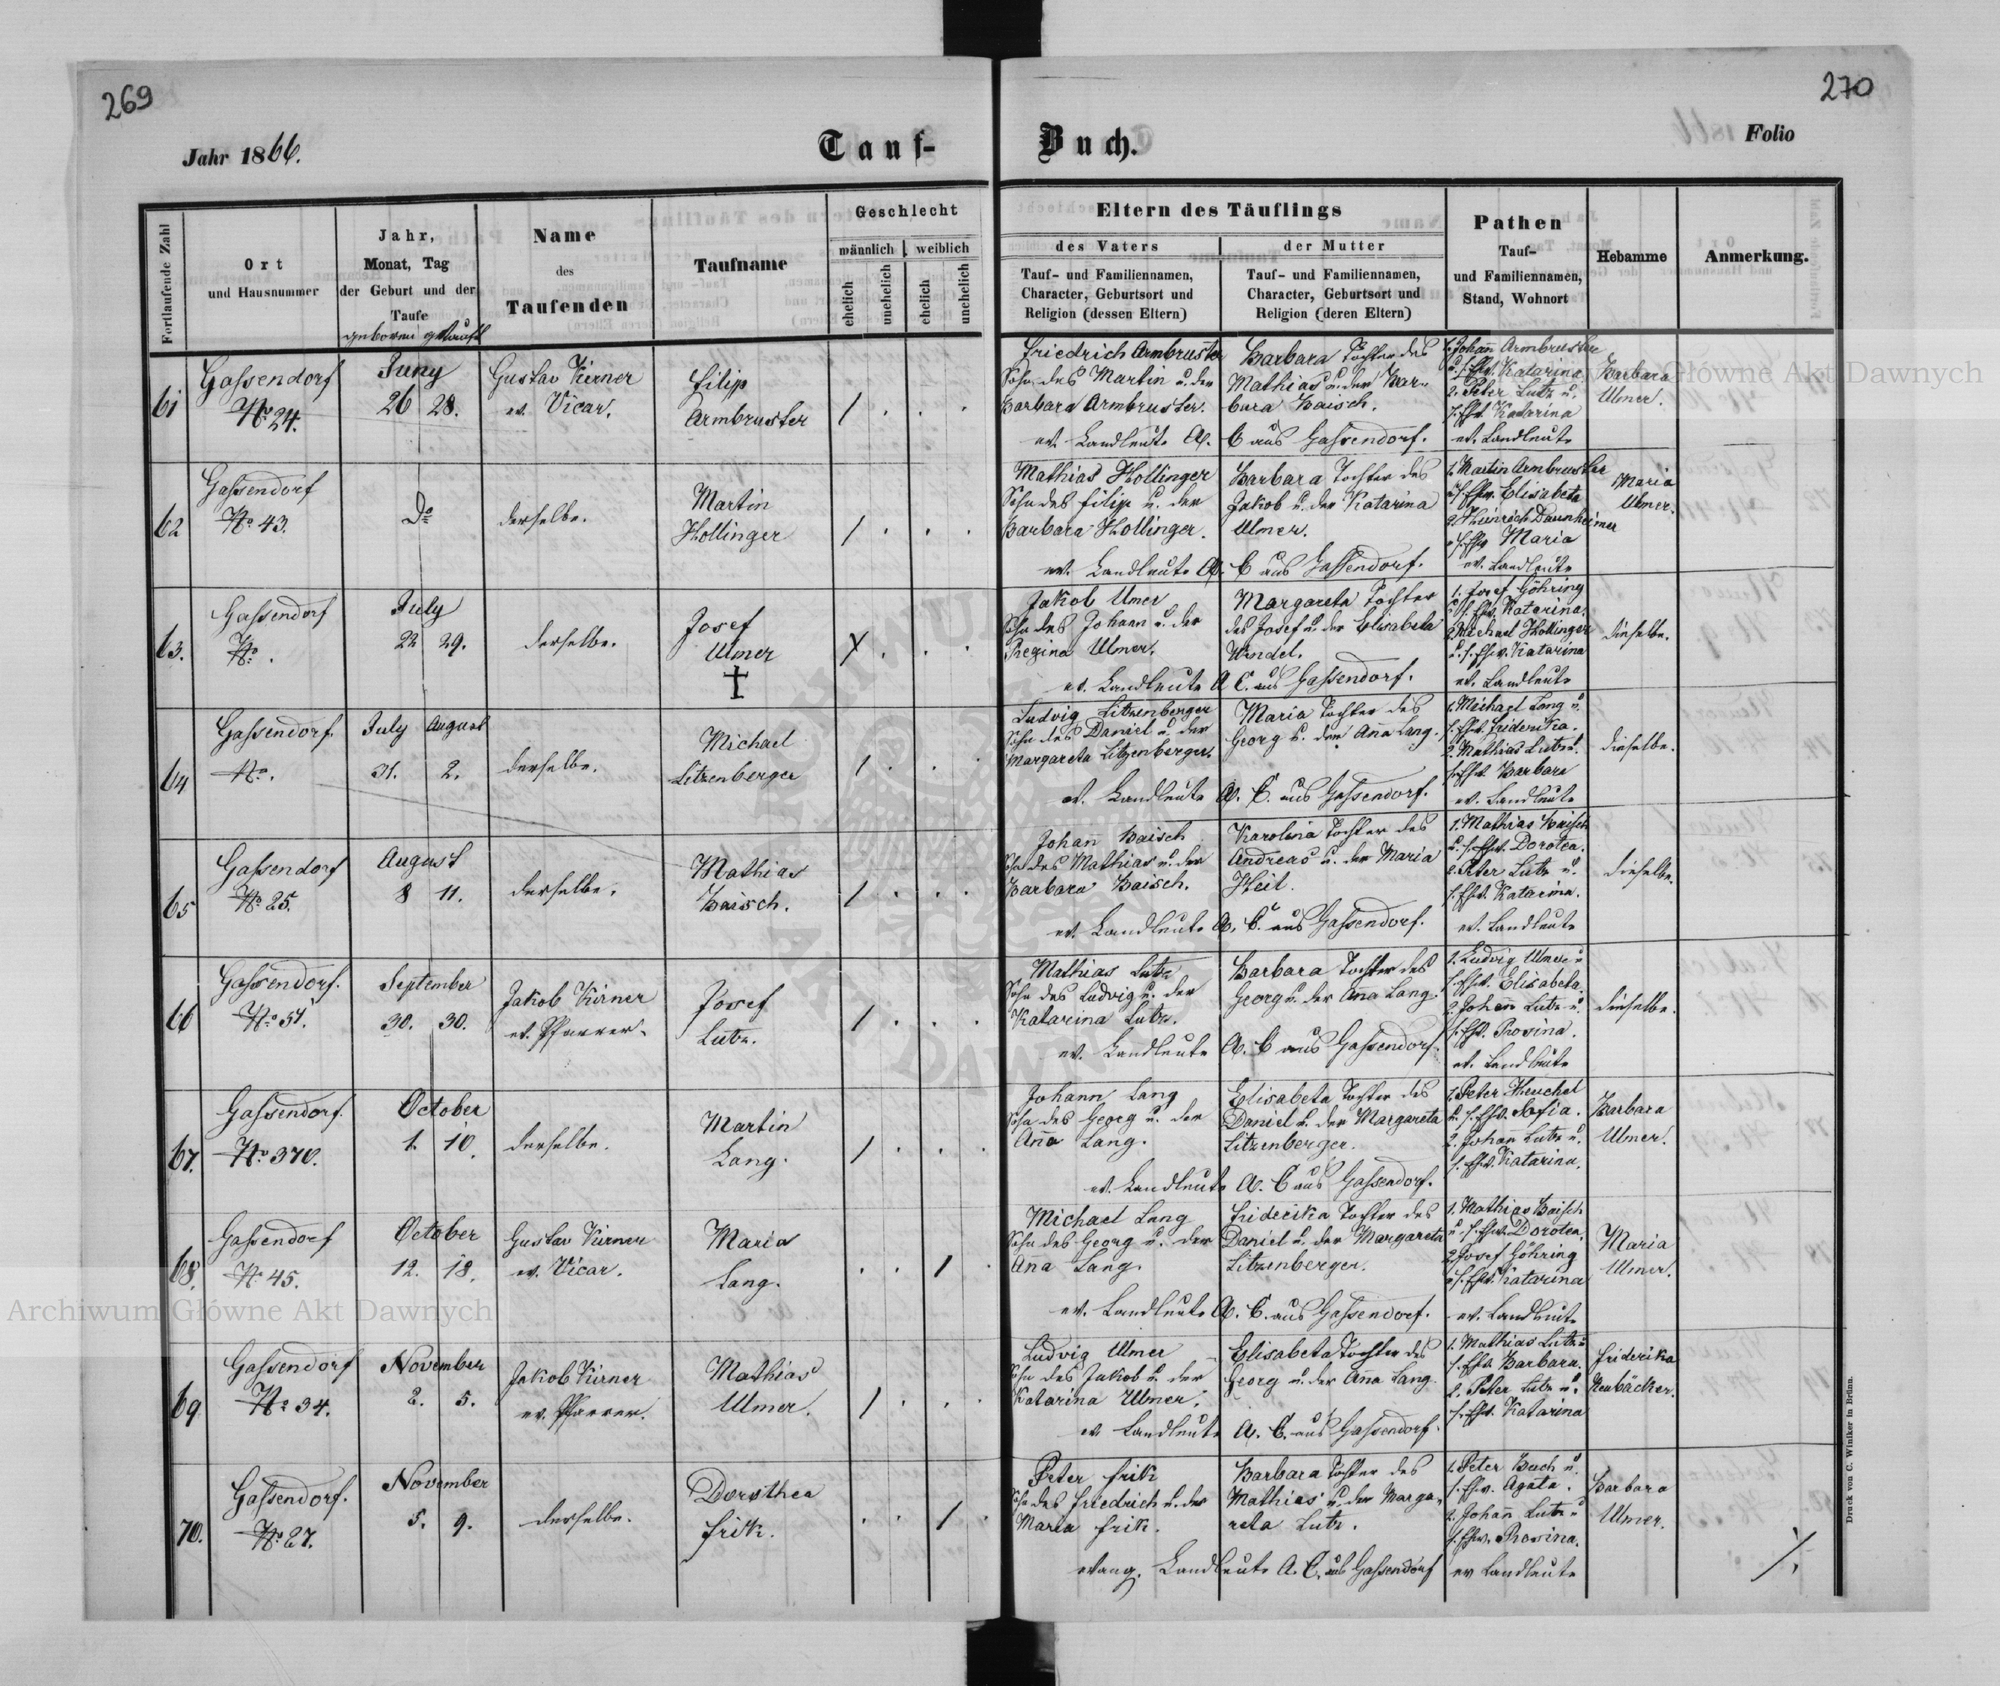 269
270
Jahr 1866.
Tauf-
Buch.
Folio
Fortlaufende Zahl
Ort
und Hausnummer
Jahr,
Monat, Tag
der Geburt und der
Taufe
geboren getauft
Name
des
Taufenden
Taufname
Geschlecht
männlich weiblich
ehelich unehelich ehelich unehelich
Eltern des Täuflings
des Vaters
Tauf- und Familiennamen,
Character, Geburtsort und
Religion (dessen Eltern)
der Mutter
Tauf- und Familiennamen,
Character, Geburtsort und
Religion (deren Eltern)
Pathen
Tauf-
und Familiennamen,
Stand, Wohnort
Hebamme
Anmerkung.
61
Gassendorf
No 24.
Juny
26 28.
Gustav Kirner
ev. Vicar.
Filip
Armbruster
/ . . .
Friedrich Armbruster
Sohn des Martin u. der
Barbara Armbruster.
Barbara Tochter des
Mathias u. der Bar-
bara Baisch.
ev. Landleute A. C aus Gassendorf.
1. Johann Armbruster
u. s. Ehw. Katarina
2. Peter Lutz u.
s. Ehw. Katarina
ev. Landleute
Barbara
Ulmer.
62
Gassendorf
No 43.
Do
derselbe.
Martin
Hollinger
/ . . .
Mathias Hollinger
Sohn des Filip u. der
Barbara Hollinger.
Barbara Tochter des
Jakob u. der Katarina
Ulmer.
ev. Landleute A. C aus Gassendorf.
1. Martin Armbruster
u. s. Ehw. Elisabeta
2. Heinrich Daunheimer
u. s. Ehw. Maria
ev. Landleute
Maria
Ulmer.
63.
Gassendorf
No.
July
22 29.
derselbe.
Josef
Ulmer
†
X . . .
Jakob Ulmer
Sohn des Johann u. der
Regina Ulmer.
Margareta Tochter
des Josef u. der Elisabeta
Wendel.
ev. Landleute A C. aus Gassendorf.
1. Josef Göhring
u. s. Ehw. Katarina.
2. Michael Hollinger
u. s. Ehw. Katarina
ev. Landleute
dieselbe.
64
Gassendorf.
No.
July August
31. 2.
derselbe.
Michael
Litzenberger
/ . . .
Ludvig Litzenberger
Sohn des Daniel u. der
Margareta Litzenberger.
Maria Tochter des
Georg u. der Anna Lang.
ev. Landleute A. C. aus Gassendorf.
1. Michael Lang u.
s. Ehw. Friderika.
2. Mathias Lutz u.
s. Ehw. Barbara
ev. Landleute
dieselbe.
65
Gassendorf
No 25.
August
8 11.
derselbe.
Mathias
Baisch.
/ . . .
Johann Baisch
Sohn des Mathias u. der
Barbara Baisch.
Karolina Tochter des
Andreas u. der Maria
Heil.
ev. Landleute A. C. aus Gassendorf.
1. Mathias Baisch
u. s. Ehw. Dorotea.
2. Peter Lutz u.
s. Ehw. Katarina.
ev. Landleute
dieselbe.
66
Gassendorf.
No 51.
September
30. 30.
Jakob Kirner
ev. Pfarrer.
Josef
Lutz.
/ . . .
Mathias Lutz
Sohn des Ludvig u. der
Katarina Lutz.
Barbara Tochter des
Georg u. der Anna Lang.
ev. Landleute A. C aus Gassendorf.
1. Ludvig Ulmer u
s. Ehw. Elisabeta.
2. Johann Lutz u.
s. Ehw. Rosina.
ev. Landleute
dieselbe.
67.
Gassendorf.
No 370.
October
1. 10.
derselbe.
Martin
Lang.
/ . . .
Johann Lang
Sohn des Georg u. der
Anna Lang.
Elisabeta Tochter des
Daniel u. der Margareta
Litzenberger.
ev. Landleute A. C aus Gassendorf.
1. Peter Heuchel
u. s. Ehw. Sofia.
2. Johann Lutz u.
s. Ehw. Katarina.
Barbara
Ulmer.
68.
Gassendorf
No 45.
October
12. 18.
Gustav Kirner
ev. Vicar.
Maria
Lang.
. . / .
Michael Lang
Sohn des Georg u. der
Ana Lang.
Friderika Tochter des
Daniel u. der Margareta
Litzenberger.
ev. Landleute A. C. aus Gassendorf.
1. Mathias Baisch
u. s. Ehw. Dorotea.
2. Josef Göhring
u. s. Ehw. Katarina
ev. Landleute
Maria
Ulmer.
69
Gassendorf
No 34.
November
2. 5.
Jakob Kirner
ev. Pfarrer.
Mathias
Ulmer.
/ . . .
Ludvig Ulmer
Sohn des Jakob u. der
Katarina Ulmer.
Elisabeta Tochter des
Georg u. der Anna Lang.
ev Landleute A. C. aus Gassendorf.
1. Mathias Lutz u
s. Ehw. Barbara.
2. Peter Lutz u.
s. Ehw. Katarina
Friderika
Neubäcker.
70.
Gassendorf.
No 27.
November
5. 9.
derselbe.
Dorothea
Frik.
. . / .
Peter Frik
Sohn des Friedrich u. der
Maria Frik.
Barbara Tochter des
Mathias u. der Marga-
reta Lutz.
evang. Landleute A. C. aus Gassendorf
1. Peter Buch u.
s. Ehw. Agata.
2. Johann Lutz u
s. Ehw. Rosina.
ev Landleute
Barbara
Ulmer.
Druck von C. Winiker in Brünn.
Archiwum Główne Akt Dawnych
Archiwum Główne Akt Dawnych
ARCHIWUM GŁÓWNE AKT DAWNYCH